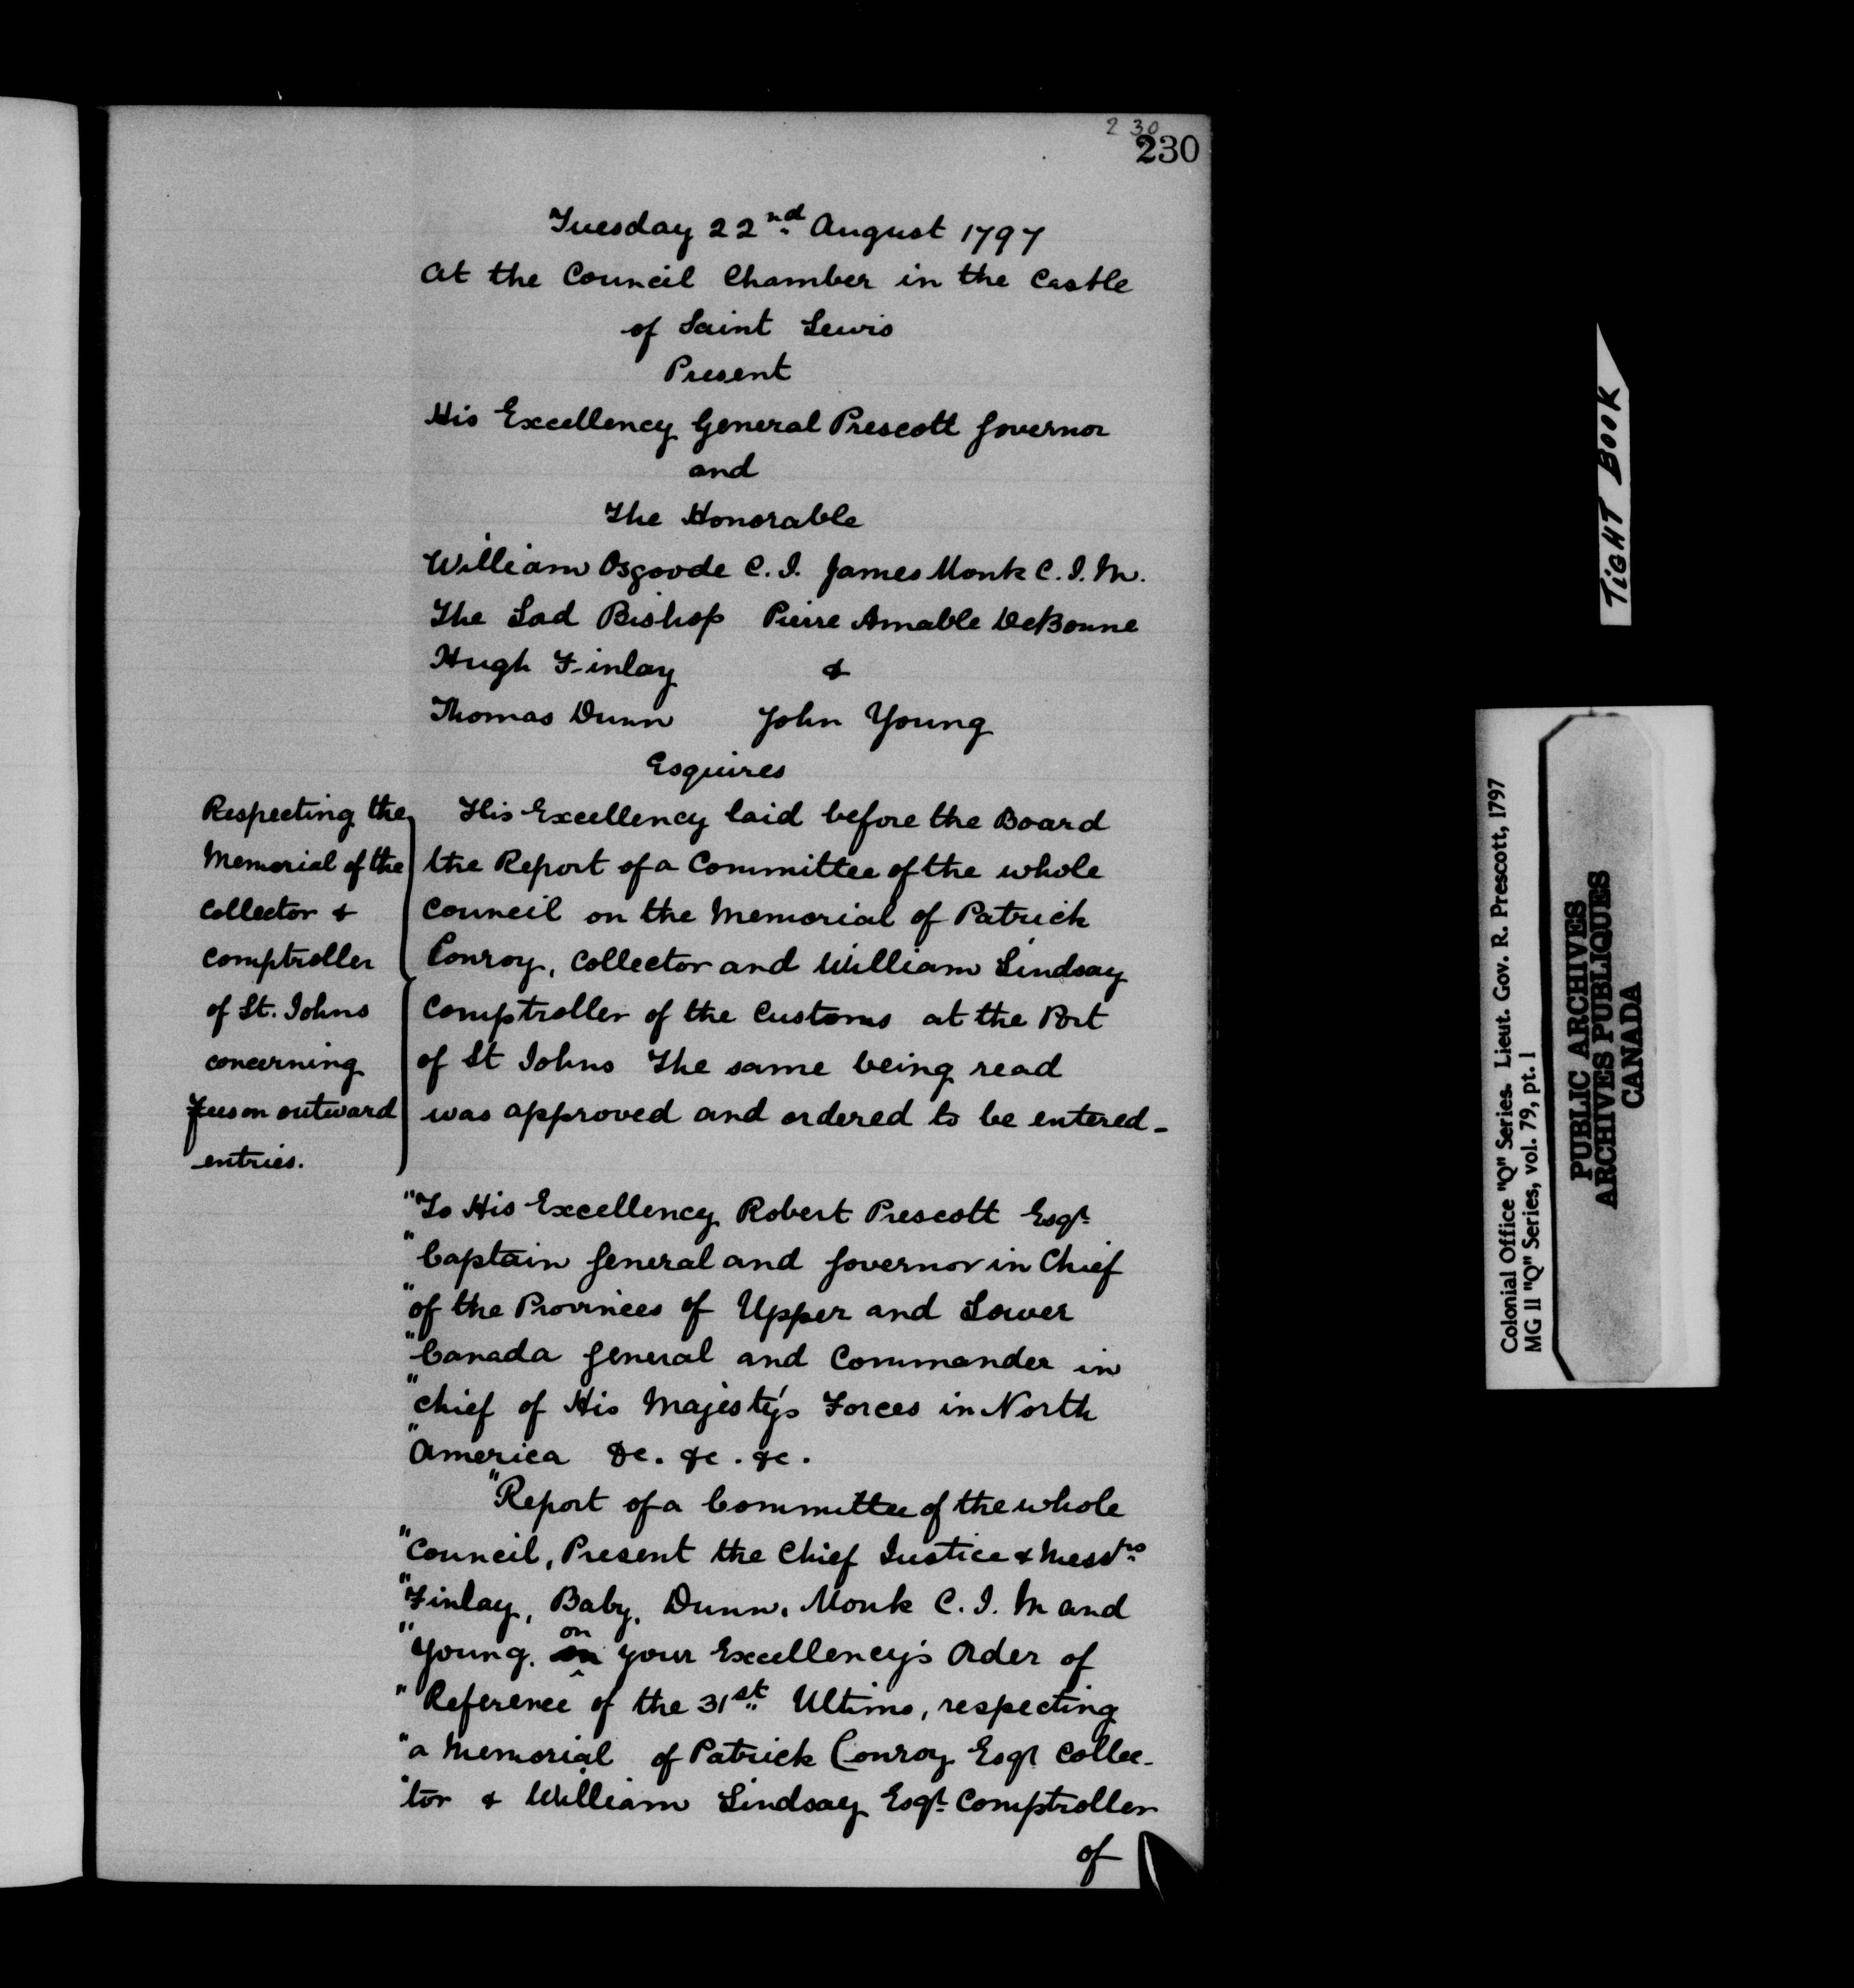 230
230
Tuesday 22nd August 1797
At the Council Chamber in the Castle
of Saint Lewis
Present
His Excellency General Prescott Governor
and
The Honorable
William Osgoode C. J. James Monk C. J. M.
The Lod Bishop Pierre Amable DeBonne
Hugh Finlay &
Thomas Dunn John Young
Esquires
Respecting the
Memorial of the
Collector &
Comptroller
of St. Johns
concerning
Fees on outward
entries.
His Excellency laid before the Board
the Report of a Committee of the whole
Council on the Memorial of Patrick
Conroy, Collector and William Lindsay
Comptroller of the Customs at the Port
of St Johns The same being read
was approved and ordered to be entered-
"To His Excellency Robert Prescott Esqr.
"Captain General and Governor in Chief
"of the Provinces of Upper and Lower
"Canada General and Commander in
"chief of His Majesty's Forces in North
"America &c. &c. &c.
"Report of a Committee of the whole
"Council, Present the Chief Justice & Messrs
"Finlay, Baby, Dunn, Monk C. J. M and
"Young, on your Excellency's Order of
"Reference of the 31st Ultimo, respecting
"a Memorial of Patrick Conroy Esqr Collec-
"tor & William Lindsay Esqr. Comptroller
of
TIGHT BOOK
Colonial Office "Q" Series. Lieut. Gov. R. Prescott, 1797
MG 11 "Q" Series, vol. 79, pt. 1
PUBLIC ARCHIVES
ARCHIVES PUBLIQUES
CANADA